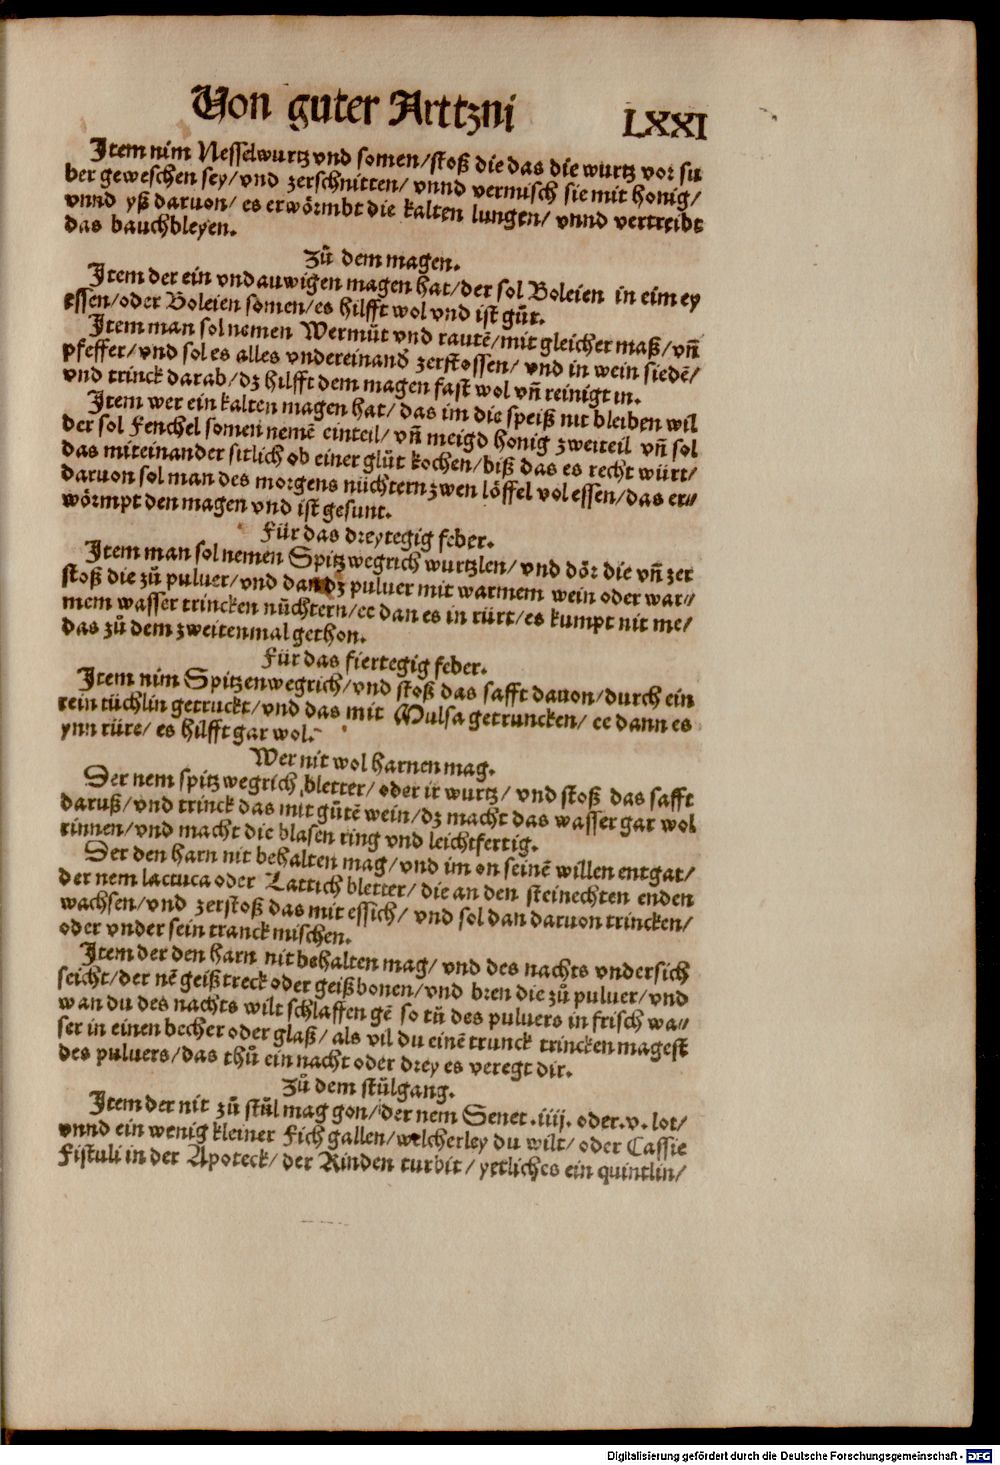 Von guter Arttzni LXXI
Item nim Nesselwurtz vnd somen/stoß die das die wurtz vor su
ber geweschen sey/vnd zerschnitten/vnnd vermisch sie mit honig/
vnnd yß daruon/es erwörmbt die kalten lungen/vnnd vertreibt
das bauchbleyen.
Zů dem magen.
Item der ein vndauwigen magen hat/der sol Boleien in eim ey
essen/oder Boleien somen/es hilfft wol vnd ist gůt.
Item man sol nemen Wermůt vnd rautē/mit gleicher maß/vñ
pfeffer/vnd sol es alles vndereinand̕ zerstossen/vnd in wein siedē/
vnd trinck darab/dz hilfft dem magen fast wol vñ reinigt in.
Item wer ein kalten magen hat/das im die speiß nit bleiben wil
der sol Fenchel somen nemē ein teil/vñ meigd honig zweiteil vñ sol
das miteinander sitlich ob einer glůt kochen/biß das es recht würt/
daruon sol man des morgens nüchtern zwen löffel vol essen/das er⸗
wörmpt den magen vnd ist gesunt.
Für das dreytegig feber.
Item man sol nemen Spitz wegrich wurtzlen/vnd dör die vñ zer
stoß die zů puluer/vnd dan dz puluer mit warmem wein oder war⸗
mem wasser trincken nüchtern/ee dan es in rürt/es kumpt nit me/
das zů dem zweitenmal gethon.
Für das fiertegig feber.
Item nim Spitzenwegrich/vnd stoß das safft dauon/durch ein
rein tüchlin getruckt/vnd das mit Mulsa getruncken/ee dann es
ynn rüre/es hilfft gar wol.
Wer nit wol harnen mag.
Der nem spitz wegrich bletter/oder ir wurtz/vnd stoß das safft
daruß/vnd trinck das mit gůtē wein/dz macht das wasser gar wol
rinnen/vnd macht die blasen ring vnd leichtfertig.
Der den harn nit behalten mag/vnd im on seinē willen entgat/
der nem lactuca oder Lattich bletter/die an den steinechten enden
wachsen/vnd zerstoß das mit essich/vnd sol dan daruon trincken/
oder vnder sein tranck mischen.
Item der den harn nit behalten mag/vnd des nachts vndersich
seicht/der nē geiß treck oder geiß bonen/vnd bren die zů puluer/vnd
wan du des nachts wilt schlaffen gē so tů des puluers in frisch wa⸗
ser in einen becher oder glaß/als vil du einē trunck trincken magest
des puluers/das thů ein nacht oder drey es veregt dir.
Zů dem stůlgang.
Item der nit zů stůl mag gon/der nem Senet .iiij. oder .v. lot/
vnnd ein wenig kleiner Fich gallen/welcherley du wilt/oder Cassie
Fistuli in der Apoteck/der Rinden turbit/yetliches ein quintlin/
Digitalisierung gefördert durch die Deutsche Forschungsgemeinschaft - DFG